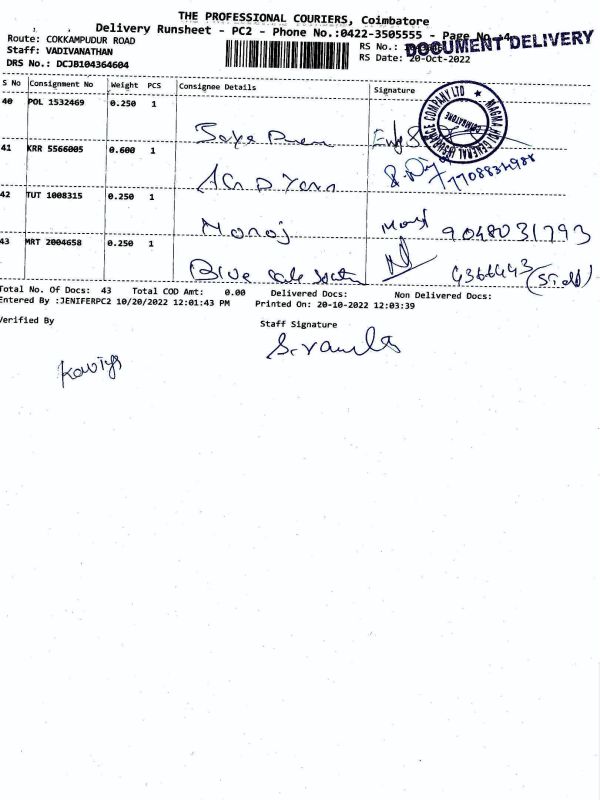 THE PROFESSIONAL COURIERS, Coimbatore
Delivery Runsheet - PC2 - Phone No.:0422-3505555 - Page No.:4
DOCUMENT DELIVERY
Route: COKKAMPUDUR ROAD
RS No.:
Staff: VADIVANATHAN
RS Date: 20-Oct-2022
DRS No.: DCJB104364604
S No Consignment No Weight PCS Consignee Details Signature
40 POL 1532469 0.250 1
MAGMA HDI GENERAL INSURANCE COMPANY LTD
COIMBATORE
41 KRR 5566005 0.600 1
42 TUT 1008315 0.250 1
Manoj 9048031793
43 MRT 2004658 0.250 1
Blue
Total No. Of Docs: 43 Total COD Amt: 0.00 Delivered Docs: Non Delivered Docs:
Entered By :JENIFERPC2 10/20/2022 12:01:43 PM Printed On: 20-10-2022 12:03:39
Verified By Staff Signature